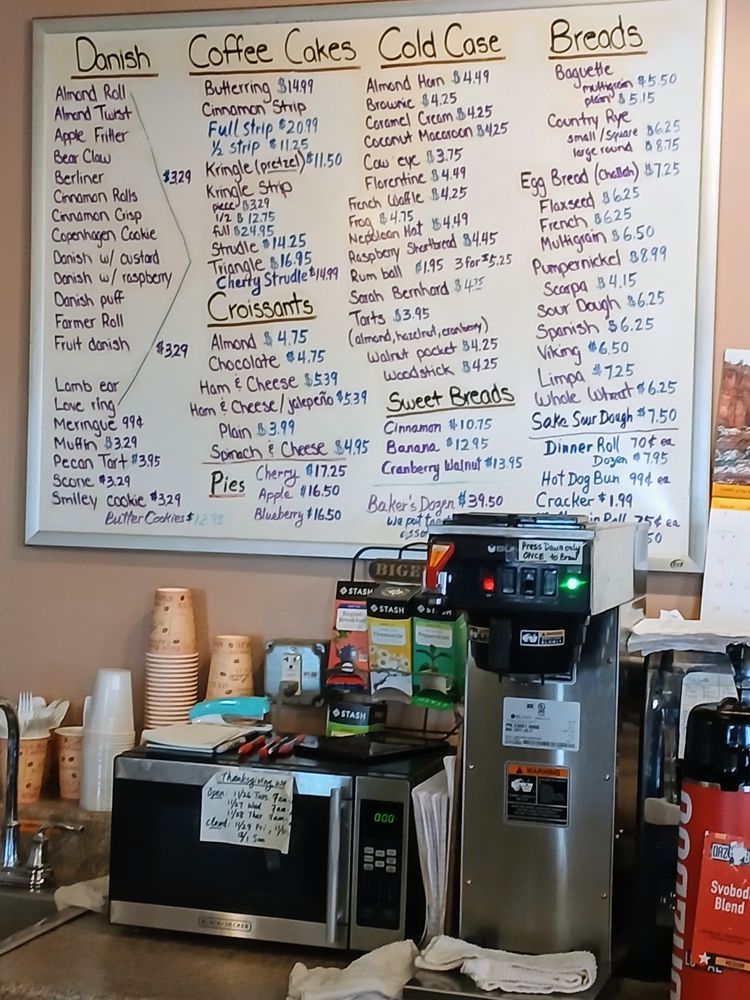 Danish
Almond Roll
Almond Twist
Apple Fritter
Bear Claw
Berliner $3.29
Cinnamon Rolls
Cinnamon Crisp
Copenhagen Cookie
Danish w/ custard
Danish w/ raspberry
Danish puff
Farmer Roll
Fruit danish $3.29
Lamb ear
Love ring
Meringue 99¢
Muffin $3.29
Pecan Tart $3.95
Scone $3.29
Smiley cookie $3.29
Butter Cookies $12.95
Coffee Cakes
Butterring $14.99
Cinnamon Strip
Full strip $20.99
½ strip $11.25
Kringle (pretzel) $11.50
Kringle Strip
piece $3.29
1/2 $12.75
full $24.95
Strudle $14.25
Triangle $16.95
Cherry Strudle $14.99
Croissants
Almond $4.75
Chocolate $4.75
Ham & Cheese $5.39
Ham & Cheese/jalepeño $5.39
Plain $3.99
Spinach & Cheese $4.95
Pies
Cherry $17.25
Apple $16.50
Blueberry $16.50
Cold Case
Almond Horn $4.49
Brownie $4.25
Caramel Cream $4.25
Coconut Macaroon $4.25
Cow eye $3.75
Florentine $4.49
French Waffle $4.25
Frog $4.75
Nepolean Hat $4.49
Raspberry Shortbread $4.45
Rum ball $1.95 3 for $5.25
Sarah Bernhard $4.75
Tarts $3.95
(almond, hazelnut, cranberry)
Walnut pocket $4.25
Woodstick $4.25
Sweet Breads
Cinnamon $10.75
Banana $12.95
Cranberry Walnut $13.95
Baker's Dozen $39.50
We put
Breads
Baguette
multigrain $5.50
plain $5.15
Country Rye
small/square $6.25
large round $8.75
Egg Bread (Challah) $7.25
Flaxseed $6.25
French $6.25
Multigrain $6.50
Pumpernickel $8.99
Scarpa $4.15
Sour Dough $6.25
Spanish $6.25
Viking $6.50
Limpa $7.25
Whole Wheat $6.25
Sake Sour Dough $7.50
Dinner Roll 70¢ ea
Dozen $7.95
Hot Dog Bun 99¢ ea
Cracker $1.99
in Roll 75¢ ea
50
BIGE
STASH
English Breakfast
STASH
Chamomile
ST
Peppermint
STASH
BUNN
Press Down only
ONCE to Brew
WARNING
Thanksgiving
Open: 11/26 Tues 7am
11/27 Wed 7am
11/28 Thur 7am
Closed: 11/29 Fri, 11/30
12/1 Sun
000
BLACK+DECKER
Svoboda
Blend